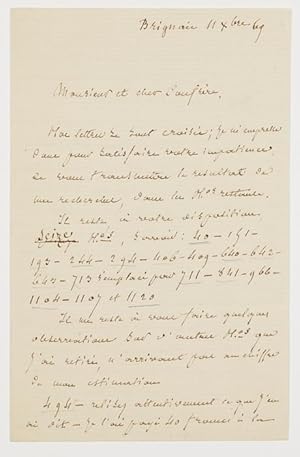 Brignais 11 Xbre 69
Monsieur et cher Confrère,
Nos lettres se sont croisées; je m'empresse
donc pour satisfaire votre impatience
de vous transmettre le résultat de
mes recherches, dans les Nos retenus.
Il reste à votre disposition
Seize Nos, savoir: 40 - 151 -
193 - 244 - 294 - 406 - 409 - 640 - 642 -
643 - 713 remplacé par 711 - 841 - 966 -
1104 - 1107 et 1120
Il me reste à vous faire quelques
observations sur d'autres Nos que
j'ai retirés, n'arrivant pas au chiffre
de mon estimation
494 - relisez attentivement ce que j'en
ai dit - je l'ai payé 40 francs à la